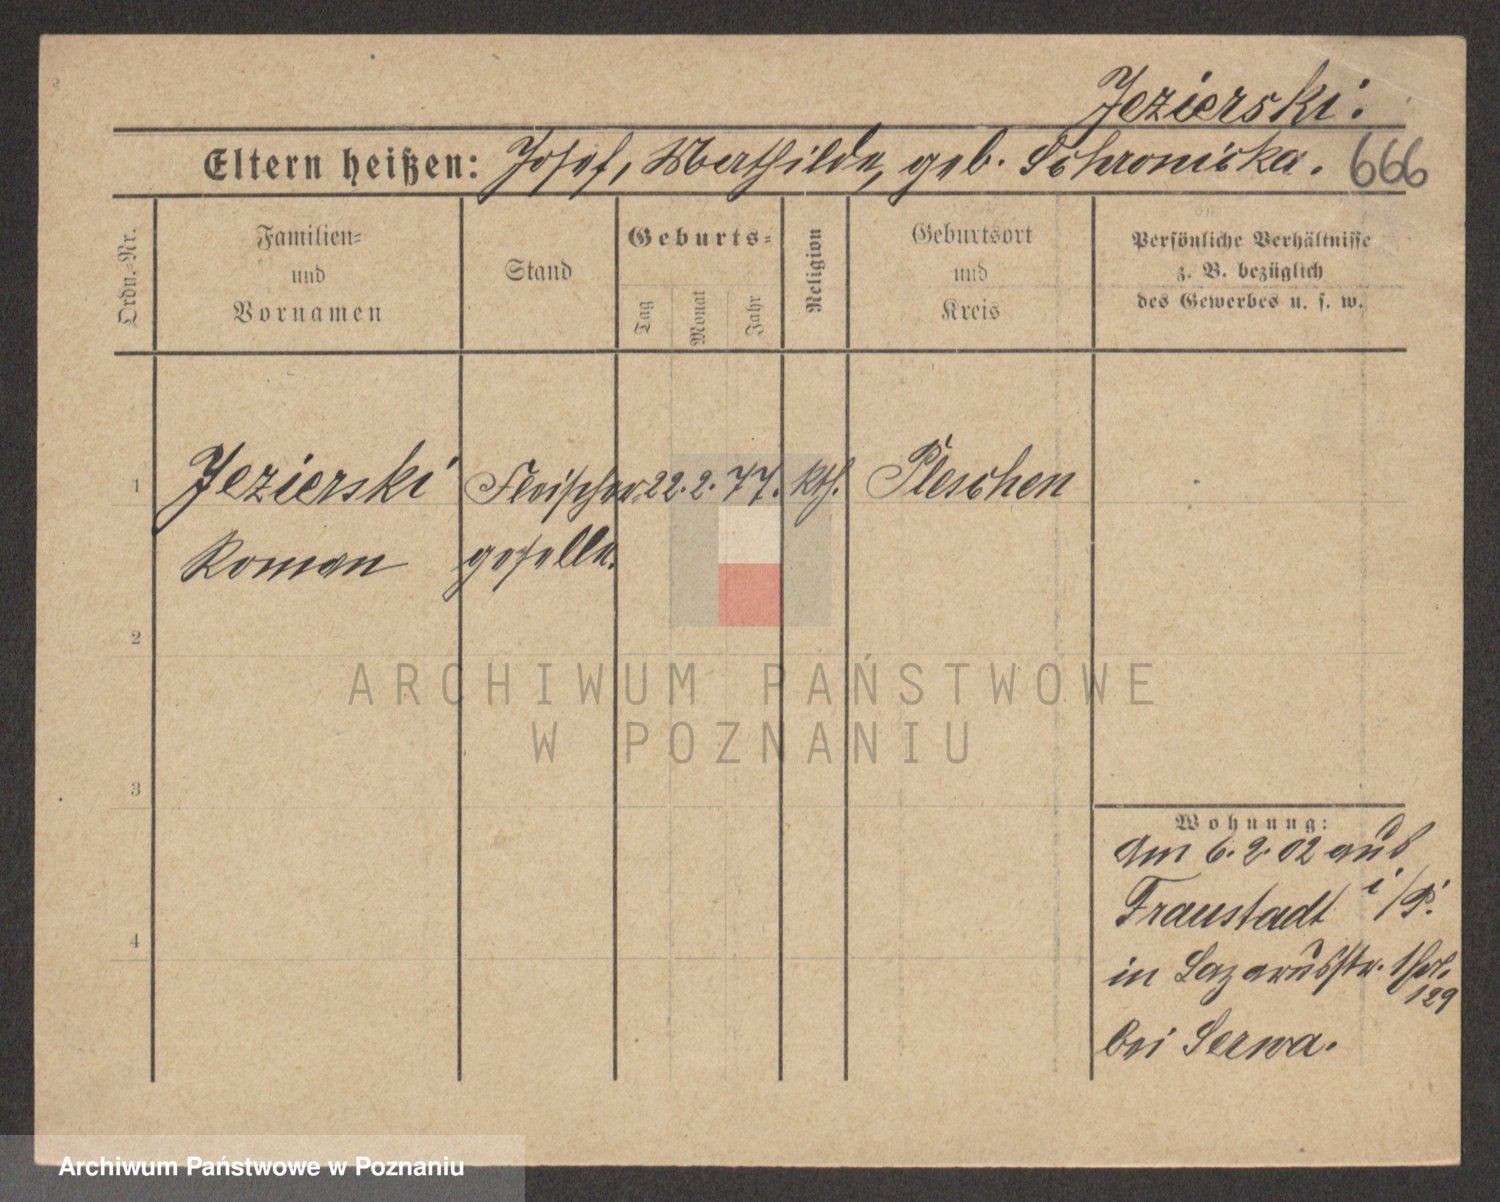 Jezierski.
Eltern heißen: Josef, Mathilde, geb.
666
Ordn.-Nr.
Familien-
und
Vornamen
Stand
Geburts-
Tag
Monat
Jahr
Religion
Geburtsort
und
Kreis
Persönliche Verhältnisse
z. B. bezüglich
des Gewerbes u. s. w.
1
Jezierski Fleischer 22. 2. 77. kth. Pleschen
Roman geselle.
2
3
4
ARCHIWUM PAŃSTWOWE
W POZNANIU
Wohnung:
Am 6. 2. 02 aus
Fraustadt i/P.
in Lazarusstr.
129
bei Serwa.
Archiwum Państwowe w Poznaniu